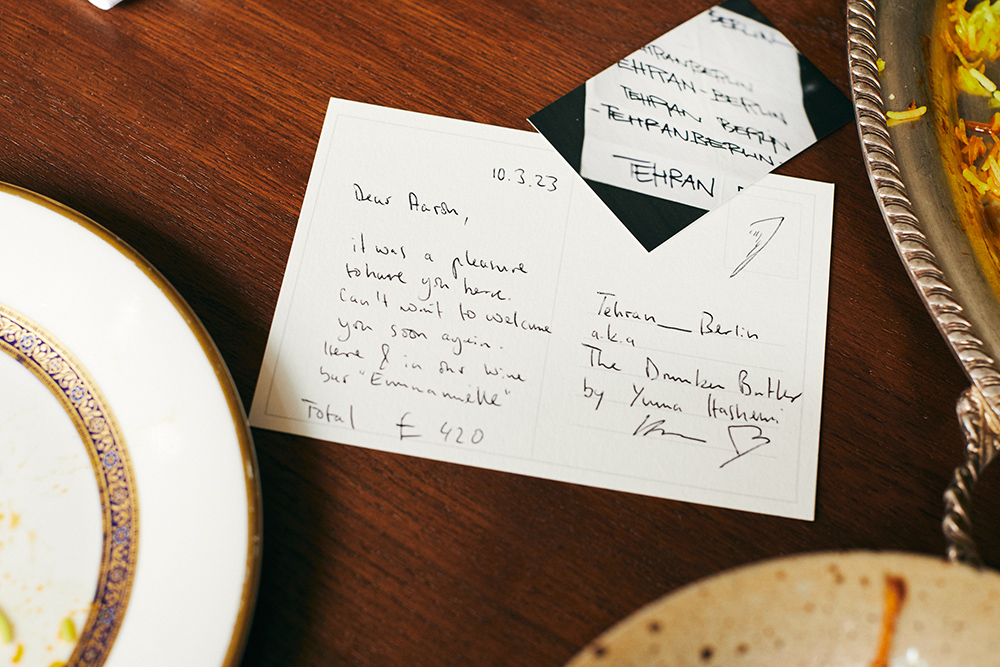 BERLIN
TEHRANBERLIN
TEHRAN-BERLIN
TEHRAN BERLIN
-TEHRANBERLIN
TEHRAN
10.3.23
Dear Aaron,
it was a pleasure
to have you here.
Can't wait to welcome
you soon again.
Here & in our wine
bar "Emmanuelle"
Total £ 420
Tehran_Berlin
a.k.a
The Drunken Butler
by Yuma Hashemi